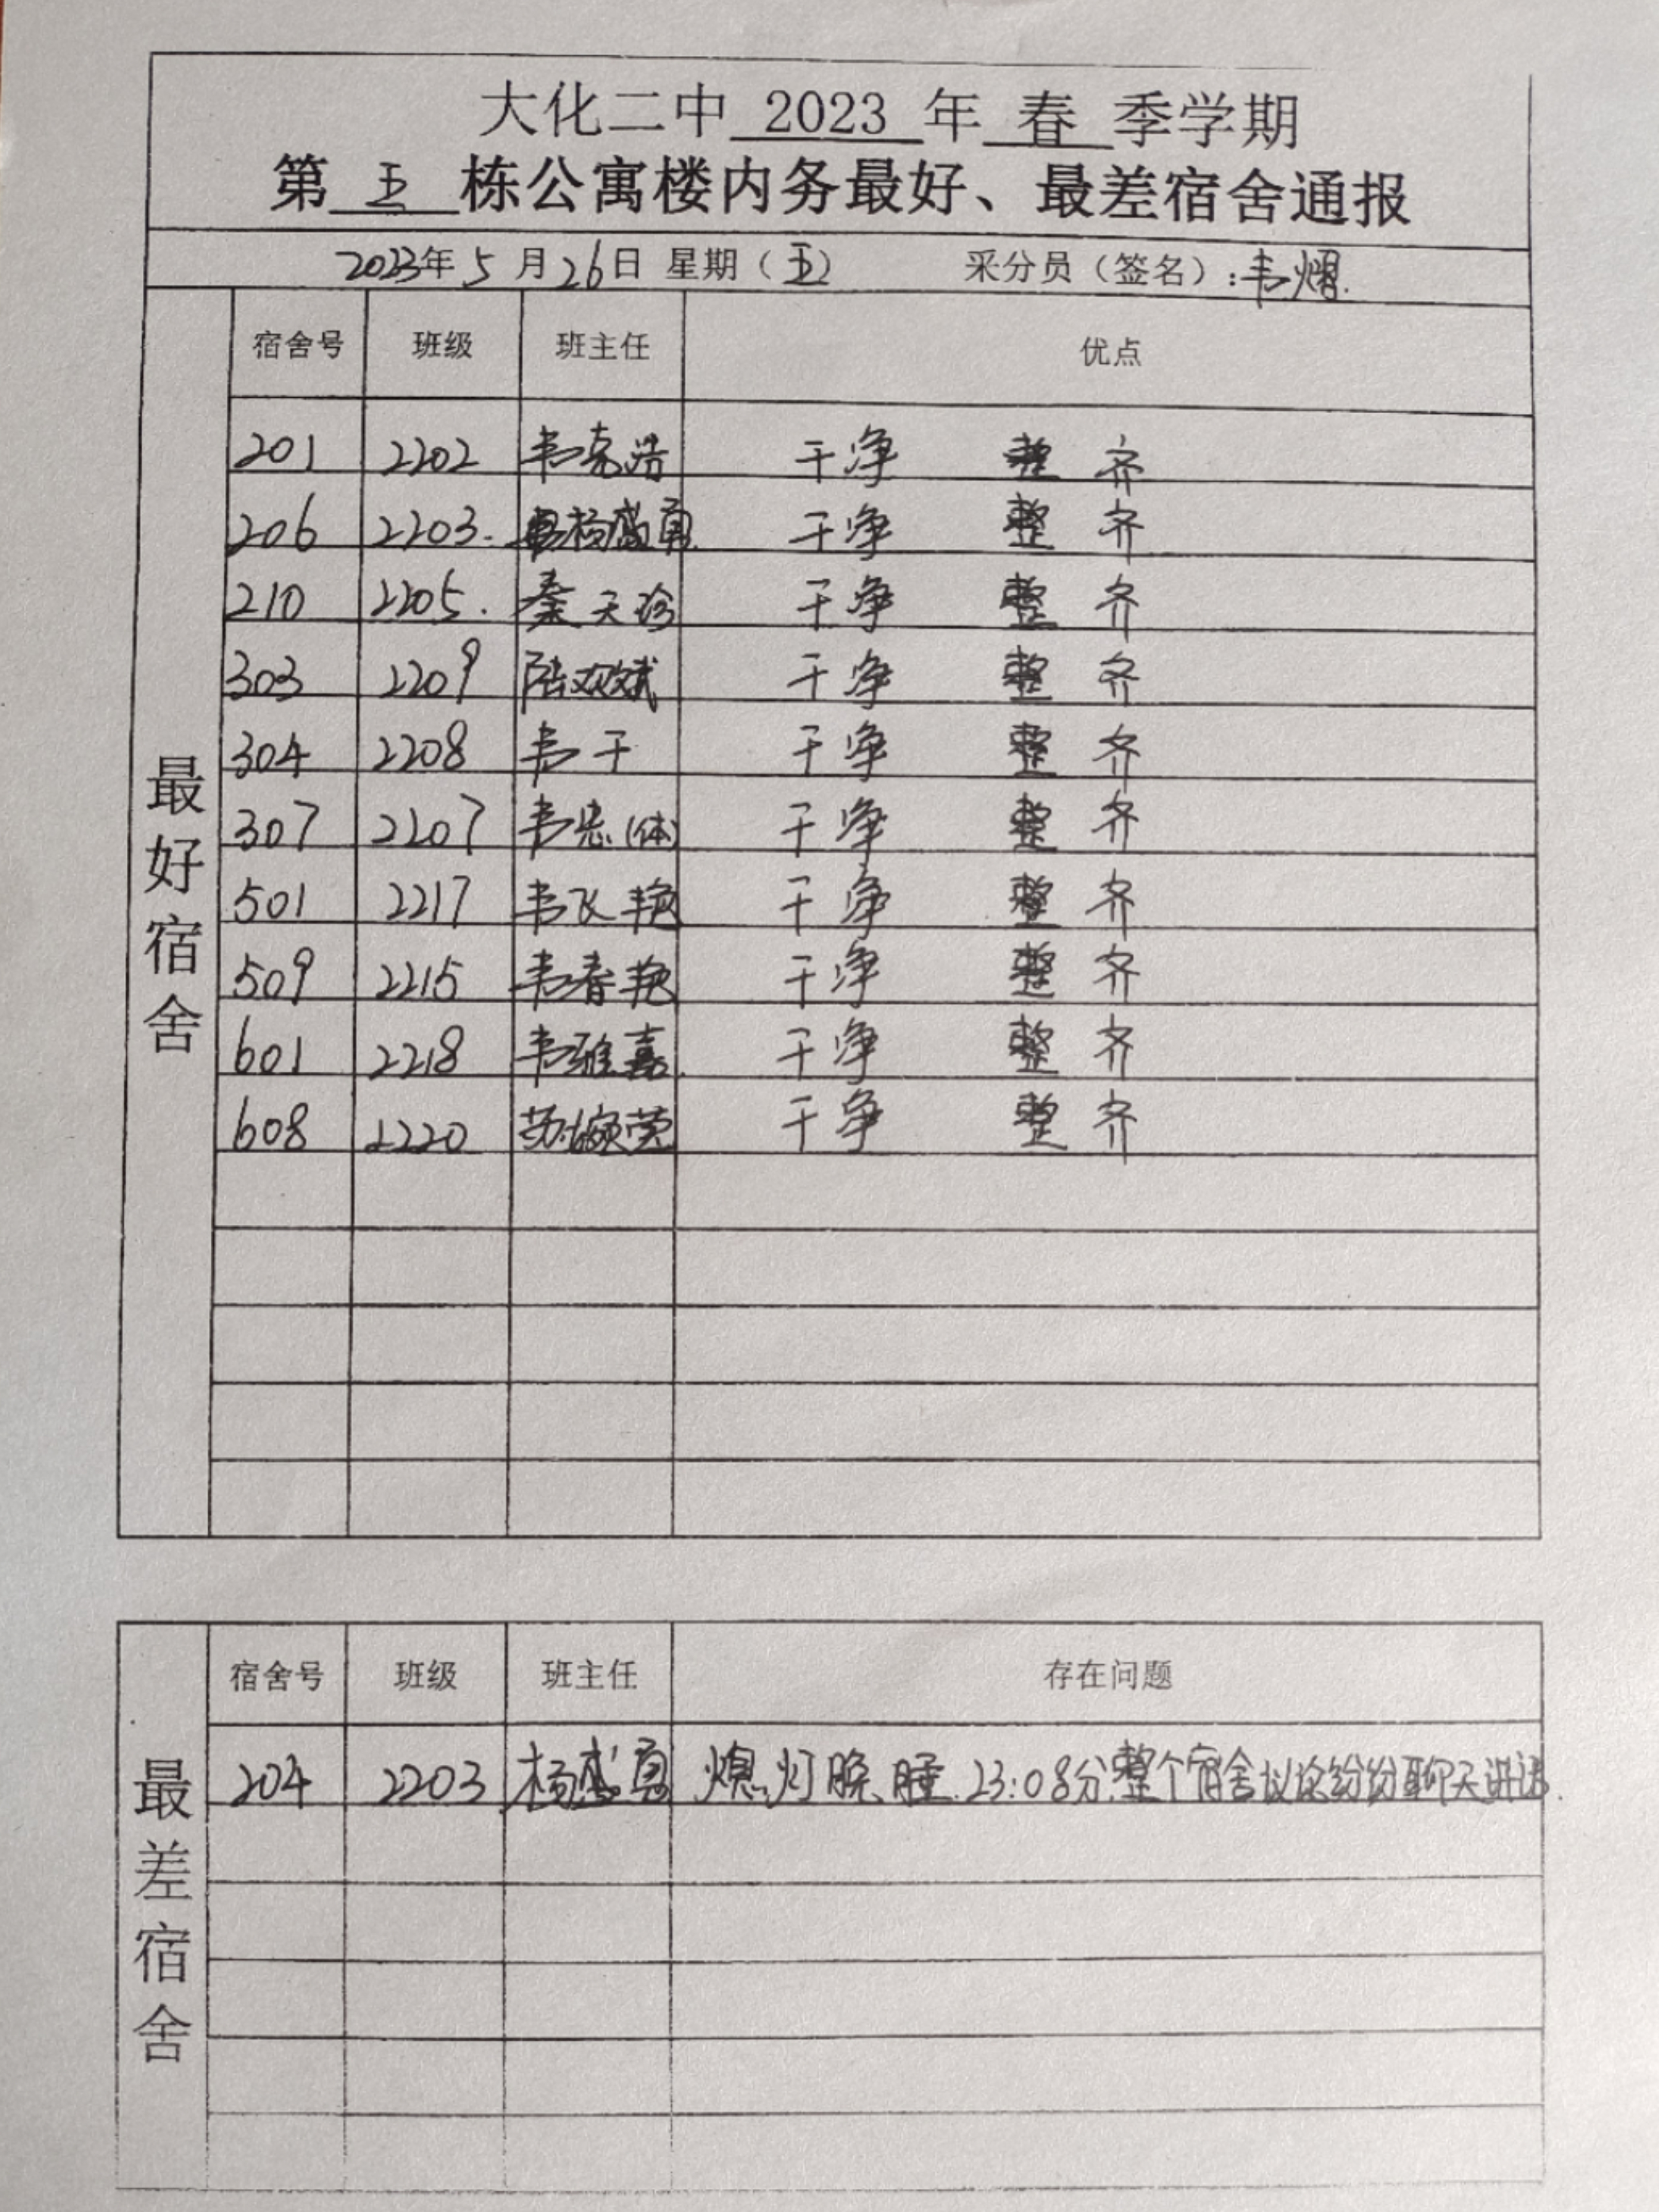 大化二中 2023 年 春 季学期
第 五 栋公寓楼内务最好、最差宿舍通报
2023年 5 月 26日 星期（五） 采分员（签名）：韦熠.
最好宿舍
宿舍号 班级 班主任 优点
201 2202 韦克浩 干净 整齐
206 2203. 杨盛勇 干净 整齐
210 2205. 秦天珍 干净 整齐
303 2209 陆欢斌 干净 整齐
304 2208 韦干 干净 整齐
307 2207 韦忠(体) 干净 整齐
501 2217 韦飞艳 干净 整齐
509 2215 韦春艳 干净 整齐
601 2218 韦雅嘉. 干净 整齐
608 2220 苏婉莹 干净 整齐
最差宿舍
宿舍号 班级 班主任 存在问题
204 2203 杨盛勇 熄灯晚睡.23:08分整个宿舍议论纷纷聊天讲话.